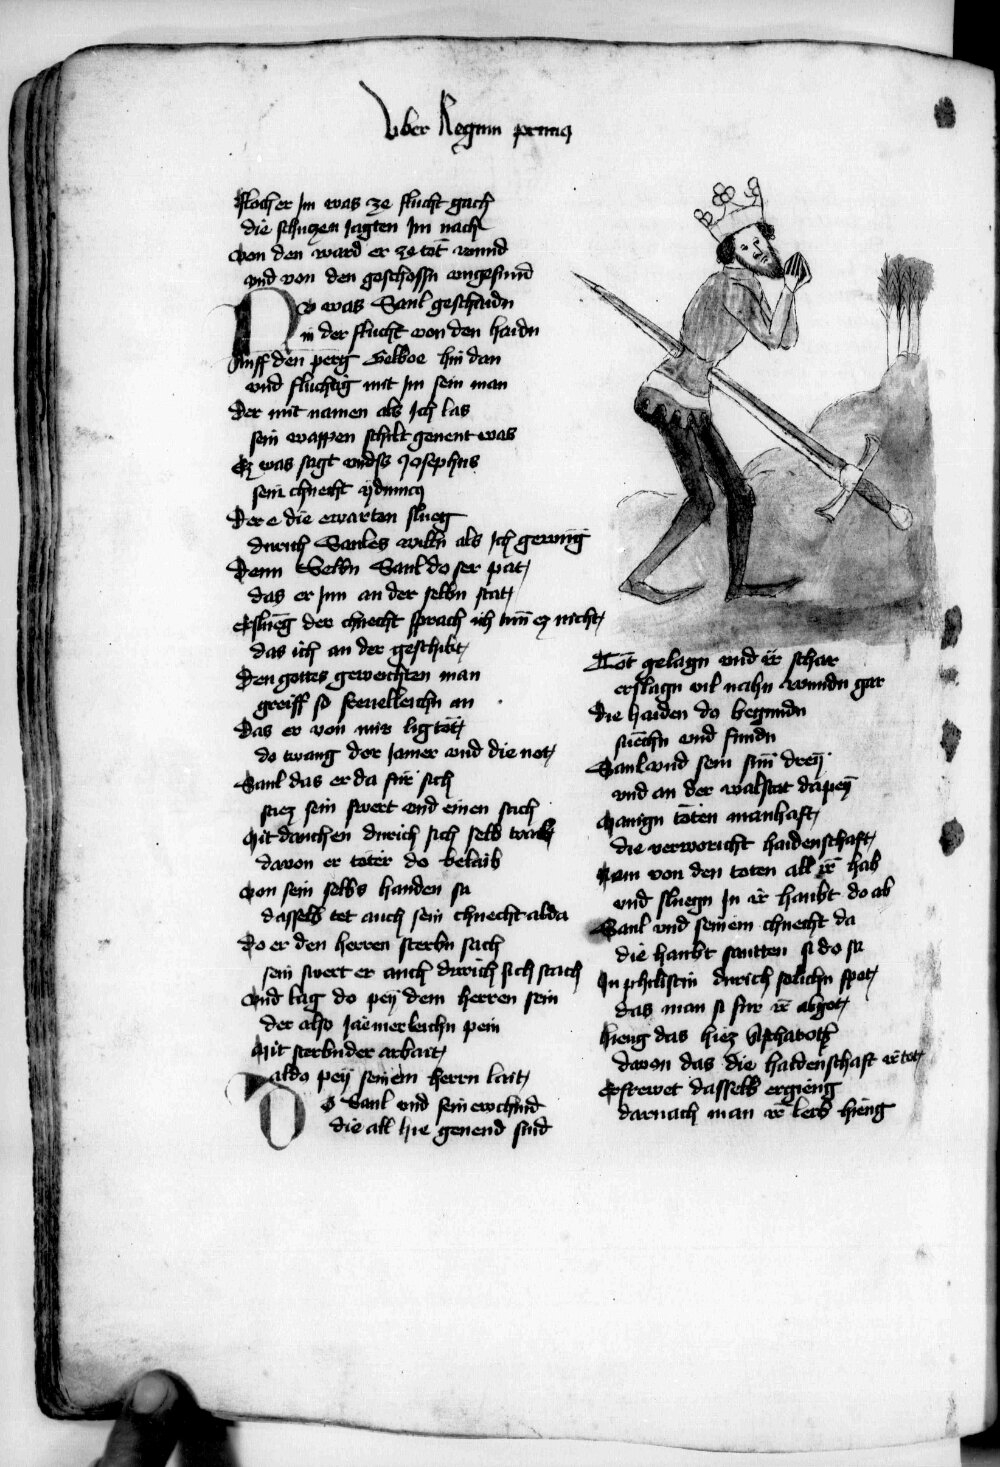 Liber Regum primus
Floch er Im was ze flucht gach
die schuczen Iagten Im nach
von den ward er ze tot wund
vnd von den geschossn vngesund
Do was Saul geschaidn
in der flucht von den haidn
Auff den perg Gelboe hin dan
vnd fluchtig mit Im sein man
Der mit namen als Ich las
sein wappen schilt genent was
Ez was sagt vnds Josephus
sein chnecht ydumeus
Der e die ewarten slueg
durich Saules willn als Ich gewueg
Denn Selbn Saul do ser pat
das er Inn an der selbn stat
Erslueg der chnecht sprach ich tun ez nicht
das ich an der geschikt
Den gottes geweichten man
greiff so freuelleichn an
Das er von mir lig tot
do twang der Iamer vnd die not
Saul das er da fur sich
sacz sein swert vnd einen stich
Mit drucken durich sich selb traib
dauon er toter do belaib
Von sein selbs handen sa
dasselb tet auch sein chnecht alda
Do er den herren sterbn sach
sein swert er auch durich sich stach
Vnd lag do pey dem herren sein
der also Iaemerleichn pein
Mit sterbnder arbait
aldo pey seinem herrn lait
Do Saul vnd sein ewchind
die all hie genend sind
Tot gelagn vnd ir schar
erslagn vil nahn wurdn gar
Die haiden do begundn
suechn vnd fundn
Saul vnd sein sun drey
vnd an der walstat dapey
Manign toten manhaft
die verworicht haidenschaft
Nam von den toten all ir hab
vnd sluegn In ir haubt do ab
Saul vnd seinem chnecht da
die haubt santten si do sa
In philistin durich solichn spot
das man si fur ir abgot
hieng das hiez Astharoth
dauon das die haidenschaft ir tot
Erfrewet dasselb ergieng
darnach man ir leib hieng